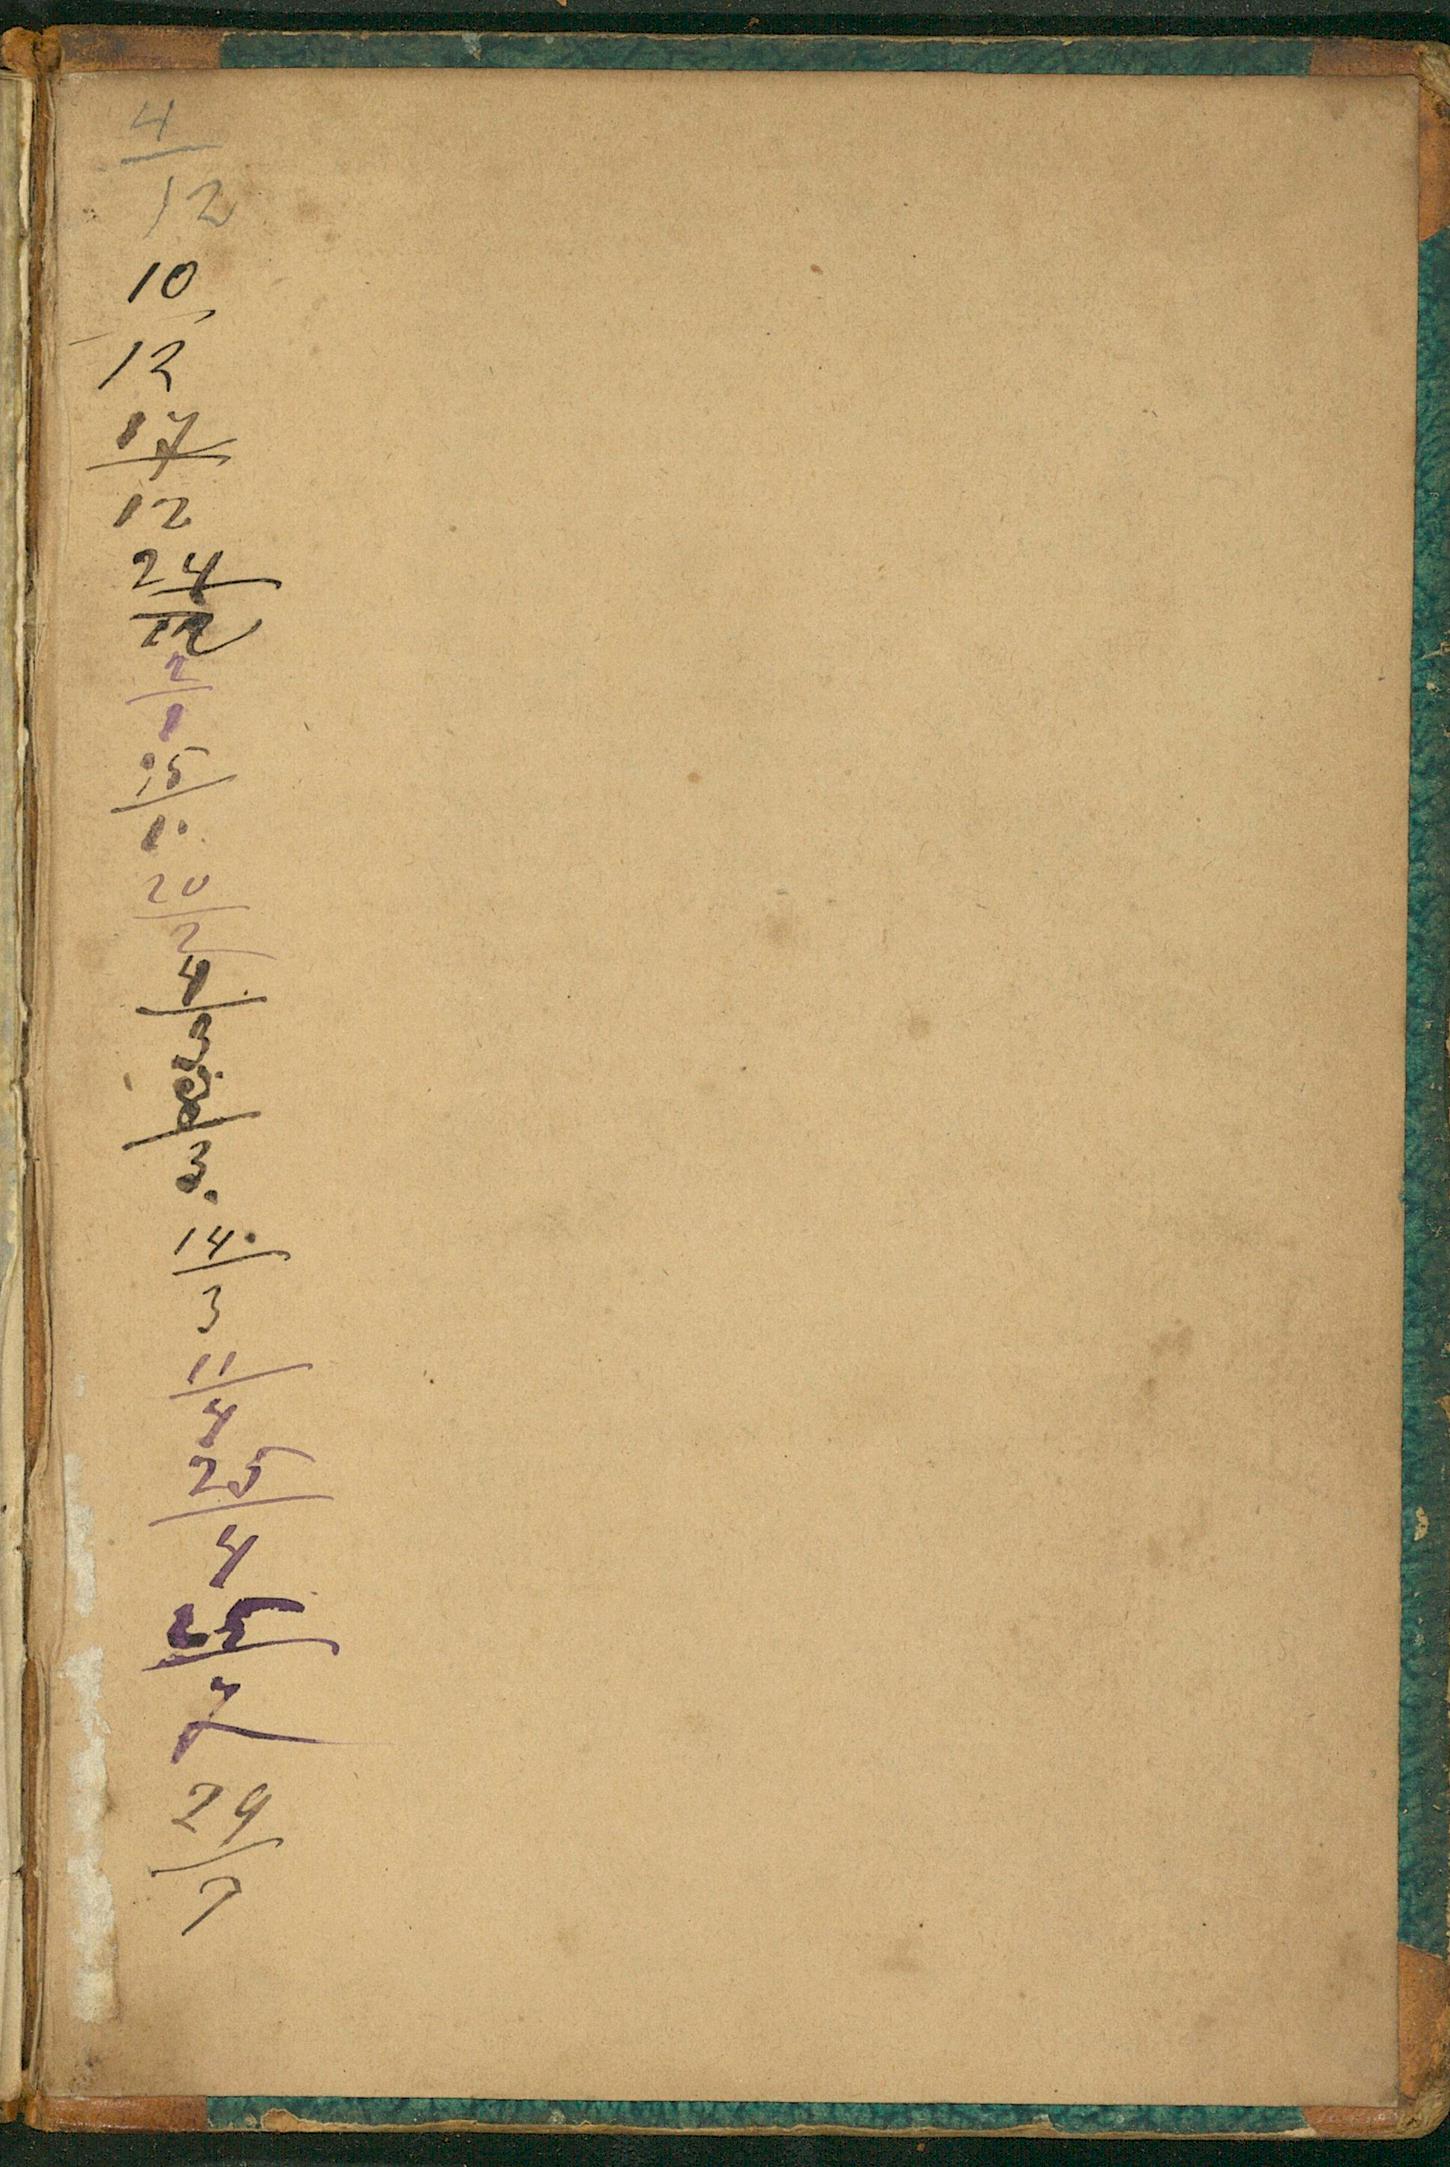 4
12
10
12
17
12
24
12
2
1
15
1
20
2
4
3
3
14
3
11
4
25
4
25
7
29
7